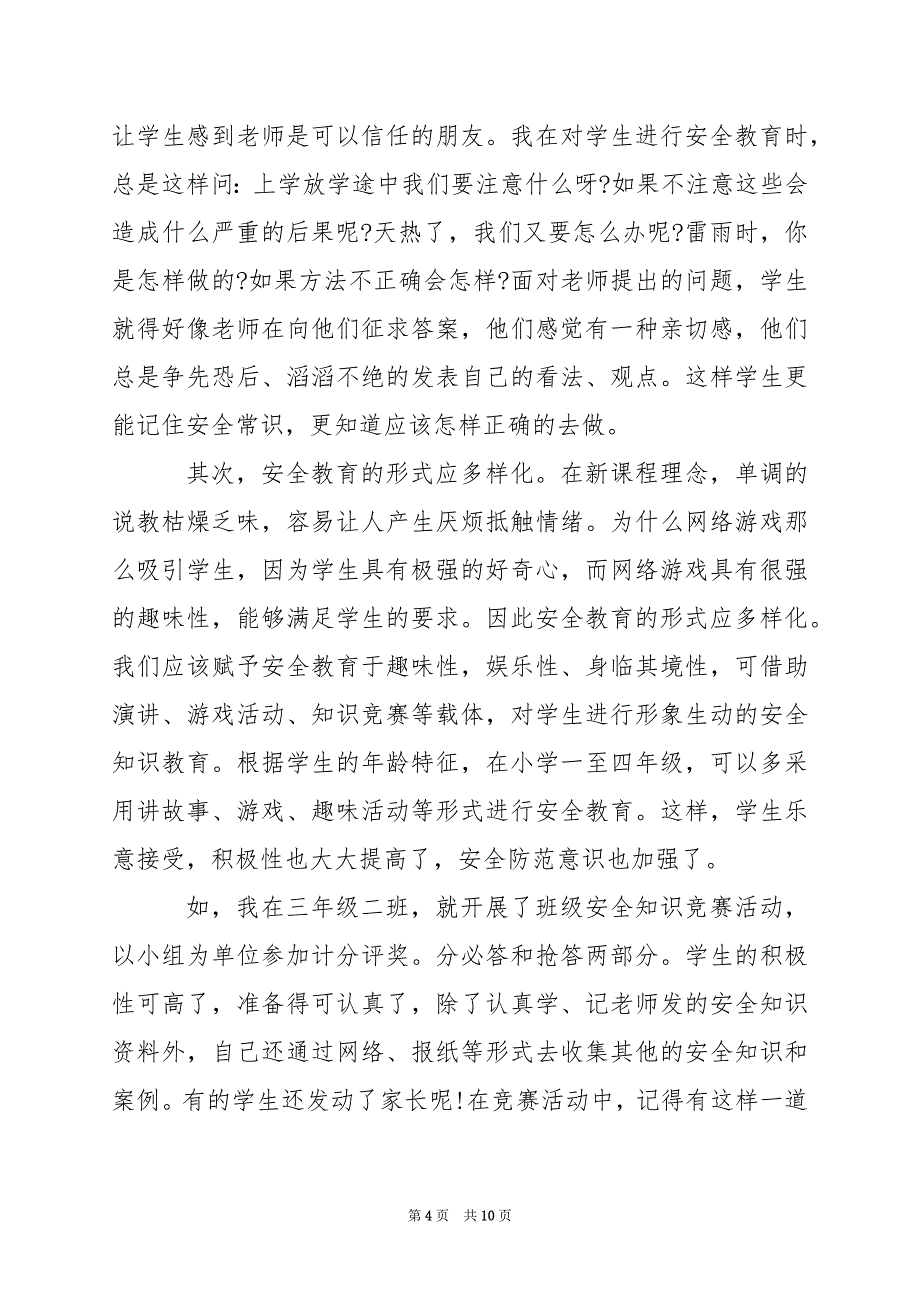 让学生感到老师是可以信任的朋友。我在对学生进行安全教育时，
总是这样问：上学放学途中我们要注意什么呀?如果不注意这些会
造成什么严重的后果呢?天热了，我们又要怎么办呢?雷雨时，你
是怎样做的?如果方法不正确会怎样?面对老师提出的问题，学生
就得好像老师在向他们征求答案，他们感觉有一种亲切感，他们
总是争先恐后、滔滔不绝的发表自己的看法、观点。这样学生更
能记住安全常识，更知道应该怎样正确的去做。
其次，安全教育的形式应多样化。在新课程理念，单调的
说教枯燥乏味，容易让人产生厌烦抵触情绪。为什么网络游戏那
么吸引学生，因为学生具有极强的好奇心，而网络游戏具有很强
的趣味性，能够满足学生的要求。因此安全教育的形式应多样化。
我们应该赋予安全教育于趣味性，娱乐性、身临其境性，可借助
演讲、游戏活动、知识竞赛等载体，对学生进行形象生动的安全
知识教育。根据学生的年龄特征，在小学一至四年级，可以多采
用讲故事、游戏、趣味活动等形式进行安全教育。这样，学生乐
意接受，积极性也大大提高了，安全防范意识也加强了。
如，我在三年级二班，就开展了班级安全知识竞赛活动，
以小组为单位参加计分评奖。分必答和抢答两部分。学生的积极
性可高了，准备得可认真了，除了认真学、记老师发的安全知识
资料外，自己还通过网络、报纸等形式去收集其他的安全知识和
案例。有的学生还发动了家长呢!在竞赛活动中，记得有这样一道
第 4 页 共 10 页